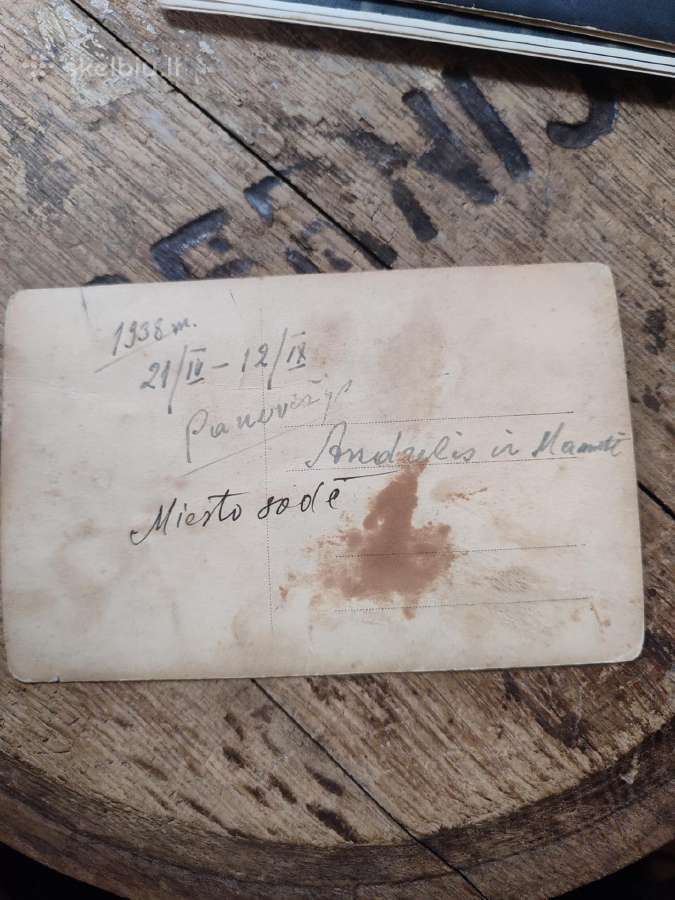 skelbiu.lt
1938 m.
21/IV – 12/IX
Panevėžys
Andzelis ir Mamutė
Miesto sodė